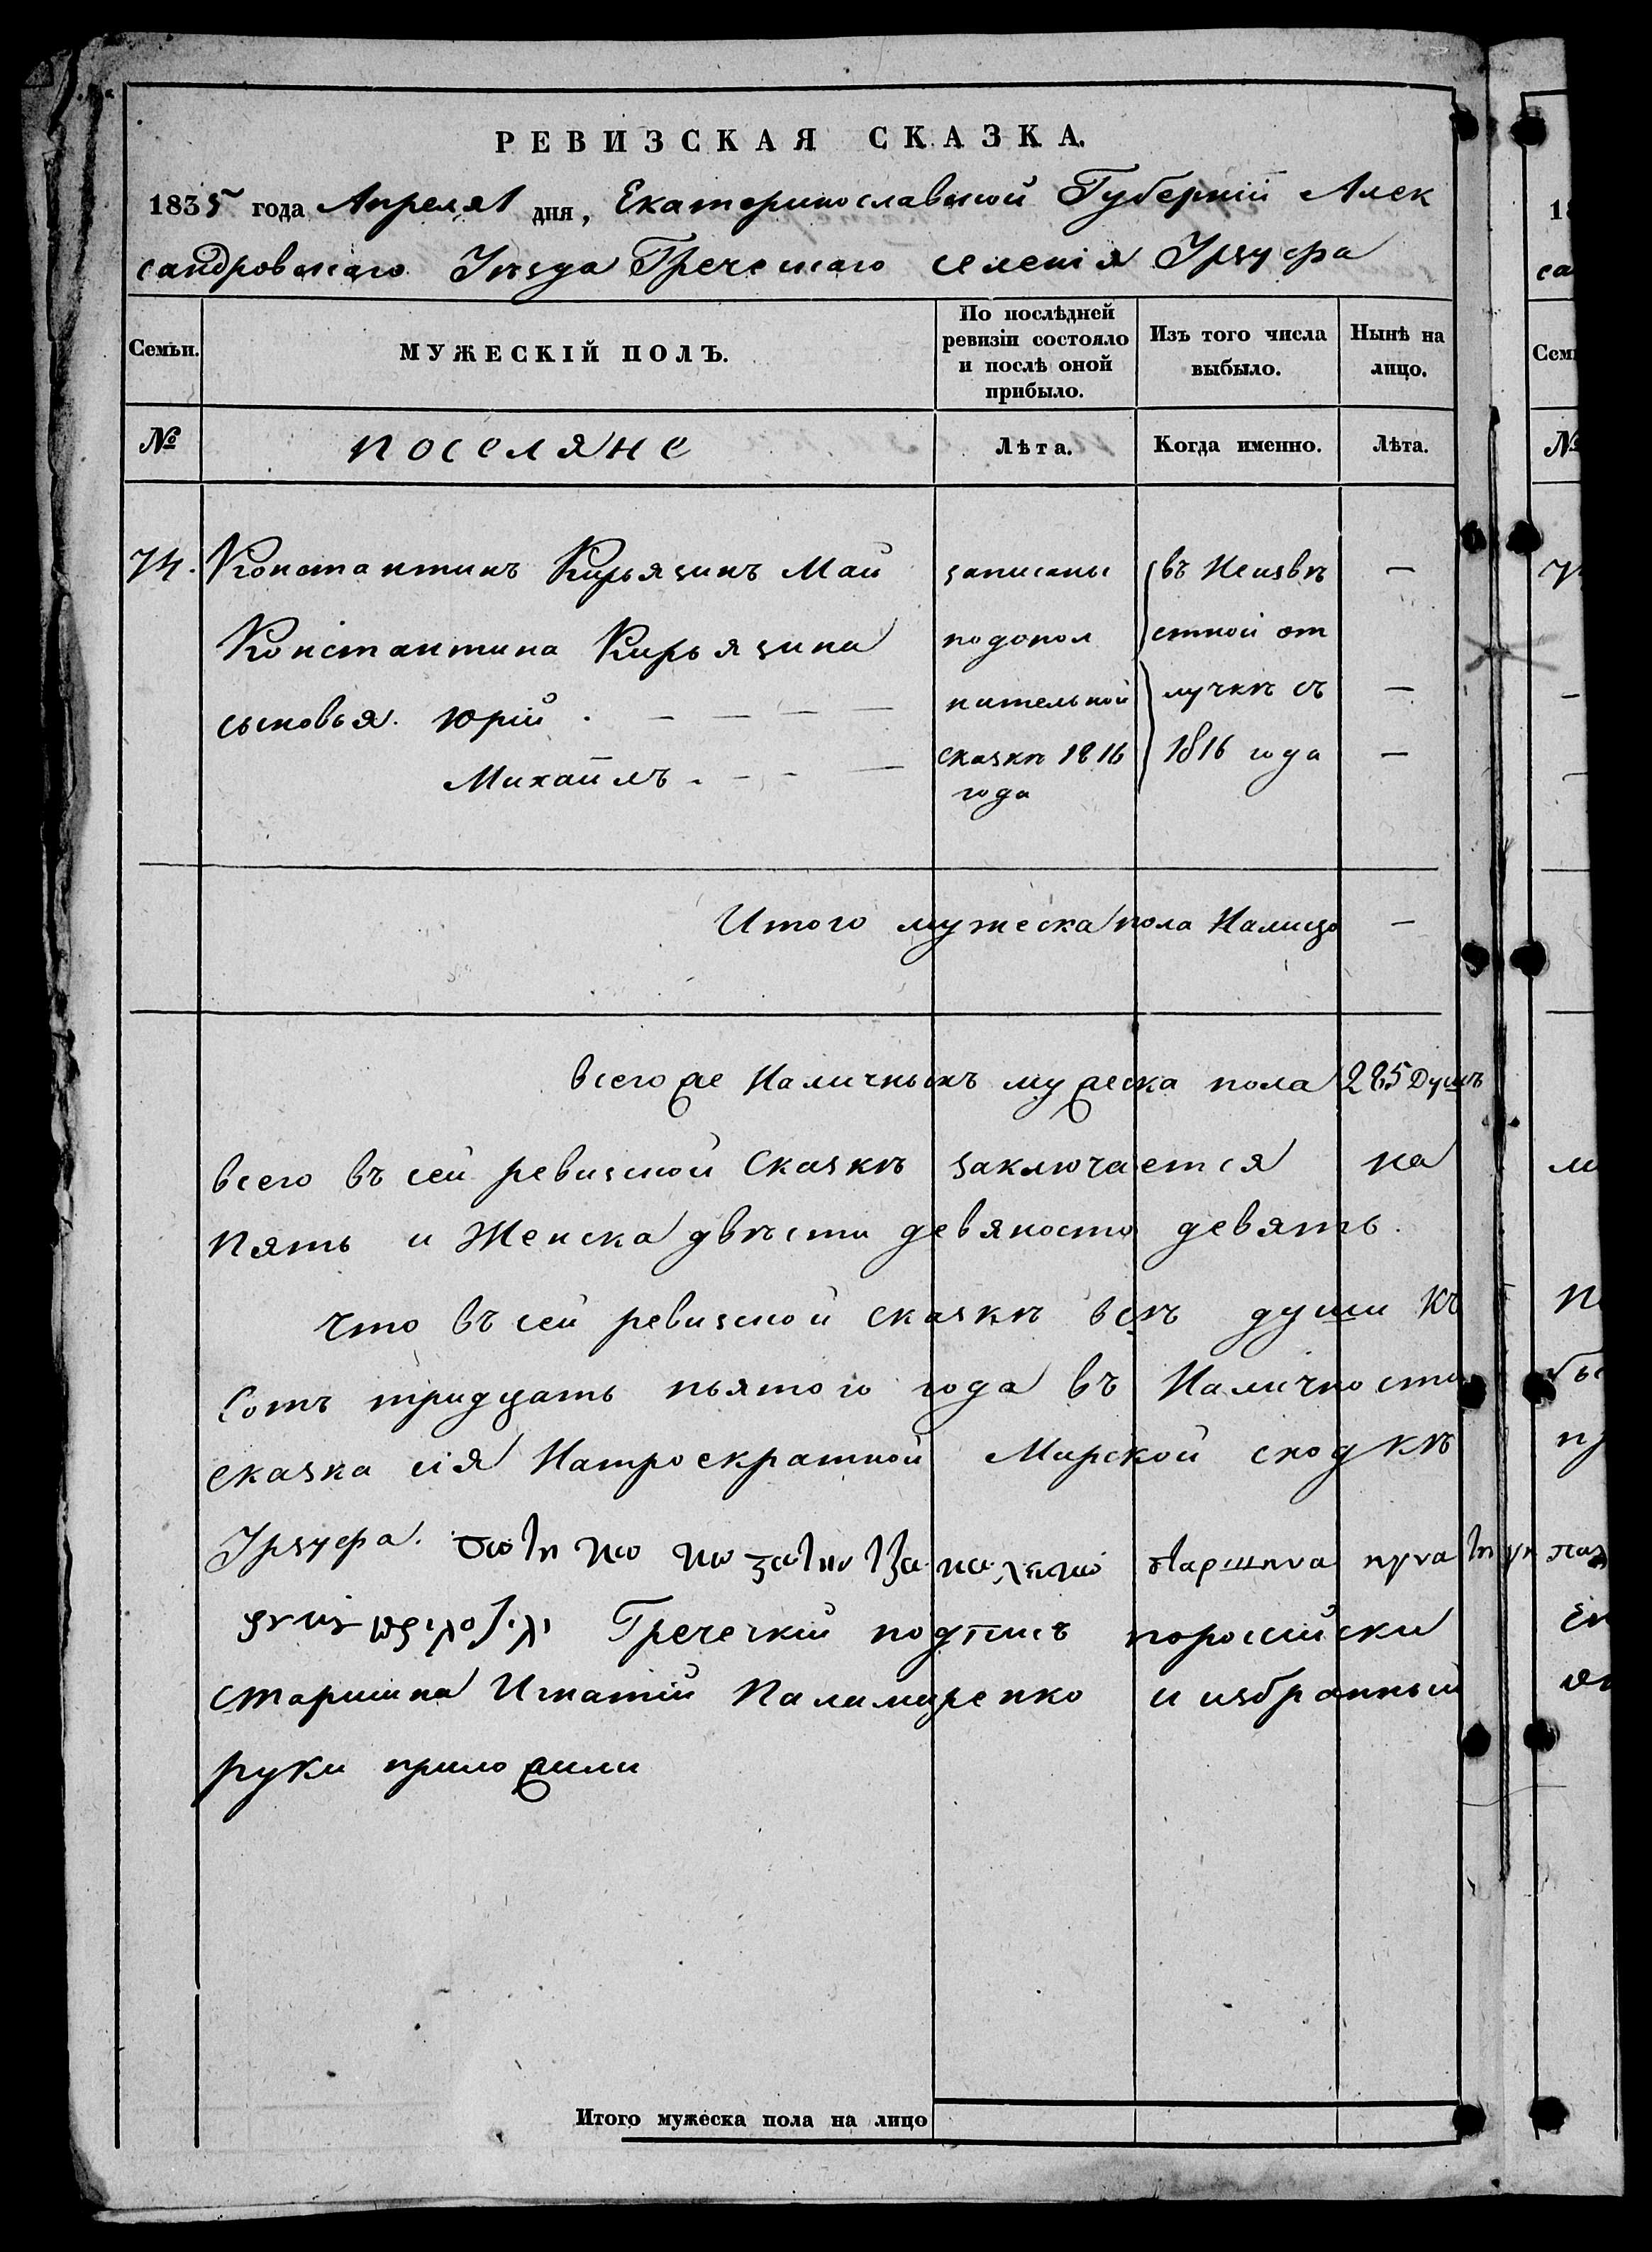 РЕВИЗСКАЯ СКАЗКА.
1835 года Апреля 1 дня, Екатеринославской Губерніи Алек
сандровскаго Уѣзда Греческаго селенія Урзуфа
Семьи.
МУЖЕСКІЙ ПОЛЪ.
По послѣдней ревизіи состояло и послѣ оной прибыло.
Изъ того числа выбыло.
Нынѣ на лицо.
№
поселяне
Лѣта.
Когда именно.
Лѣта.
74. Константинъ Кирьязинъ Май записаны въ Неизвѣ —
Константина Кирьязина подопол стной от
сыновья. Юрій . — — — — нительной лучкѣ съ —
Михайлъ . — — — сказкѣ 1816 1816 года —
года
Итого мужеска пола Налицо —
Всего же Наличныхъ мужеска пола 285 Душъ
всего въ сей ревизской Сказкѣ заключается на
пять и Женска двѣсти девяносто девять.
что въ сей ревизской сказкѣ всѣ души Къ
сотъ тридцать пьятого года въ Наличности
сказка сія Натроекратной Мирской сходкѣ
Урзуфа.
Греческій подписъ пороссійски
старшина Игнатій Паламаренко и избранный
руки приложили
Итого мужеска пола на лицо